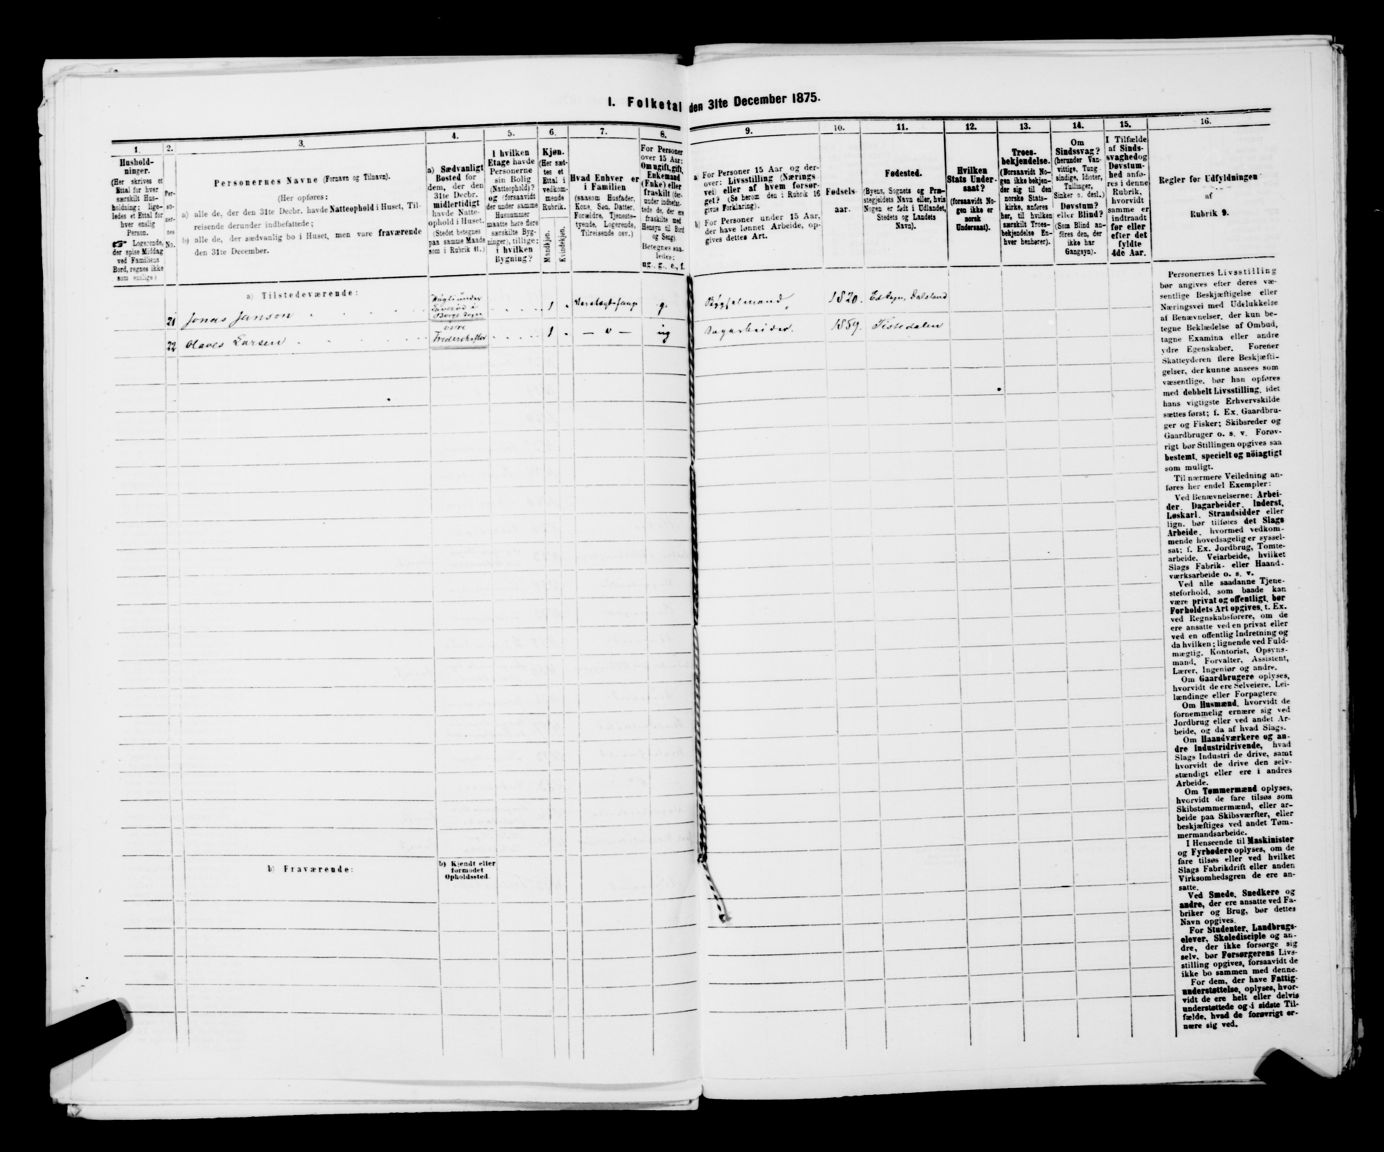 I. Folketal den 31te December 1875.
1.
Husholdninger.
(Her skrives et
Ettal for hver
særskilt Husholdning;
ligeledes et Ettal for
hver enslig
Person.
☞ Logerende,
der spise Middag
ved Familiens
Bord, regnes ikke
som enslige.)
2.
Personernes
No.
3.
Personernes Navne (Fornavn og Tilnavn).
(Her opføres:
a) alle de, der den 31te Decbr. havde Natteophold i Huset, Tilreisende
derunder indbefattede;
b) alle de, der sædvanlig bo i Huset, men vare fraværende
den 31te December.
4.
a) Sædvanligt
Bosted for
dem, der den
31te Decbr.
midlertidigt
havde Natteophold
i Huset.
(Stedet betegnes
paa samme Maade
som i Rubrik 11.)
5.
I hvilken
Etage havde
Personerne
sin Bolig
(Natteophold)?
og (forsaavidt
der under samme
Husnummer
maatte høre flere
særskilte Bygninger),
tillige:
i hvilken
Bygning?
6.
Kjøn.
(Her sættes
et
Ettal i
vedkommende
Rubrik.
Mandkjøn.
Kvindekjøn.
7.
Hvad Enhver er
i Familien
(saasom Husfader,
Kone, Søn, Datter,
Forældre, Tjenestetyende,
Logerende,
Tilreisende osv.)
8.
For Personer
over 15 Aar:
Om ugift, gift,
Enkemand
(Enke) eller
fraskilt (derunder
indbefattede
de, der ere
fraskilte med
Hensyn til Bord
og Seng).
Betegnes saaledes:
ug., g., e., f.
9.
a) For Personer 15 Aar og derover:
Livsstilling (Næringsvei)
eller af hvem forsørget?
(Se herom den i Rubrik 16
givne Forklaring).
b) For Personer under 15 Aar,
der have lønnet Arbeide, opgives
dettes Art.
10.
Fødselsaar.
11.
Fødested.
(Byens, Sognets og Præstegjeldets
Navn eller, hvis
Nogen er født i Udlandet,
Stedets og Landets
Navn).
12.
Hvilken
Stats Undersaat?
(forsaavidt Nogen
ikke er
norsk
Undersaat).
13.
Troesbekjendelse.
(Forsaavidt Nogen
ikke bekjender
sig til den
norske Statskirke,
anføres
her, til hvilken
særskilt Troesbekjendelse
Enhver
henhører).
14.
Om
Sindssvag?
(herunder Vanvittige,
Tungsindige,
Idioter,
Tullinger,
Sinker o. desl.).
Døvstum?
eller Blind?
(Som Blind anføres
den, der
ikke har
Gangsyn).
15.
I Tilfælde
af Sindssvaghed
og
Døvstumhed
anføres
i denne
Rubrik,
hvorvidt
samme er
indtraadt
før eller
efter det
fyldte
4de Aar.
16.
Regler for Udfyldningen
af
Rubrik 9.
a) Tilstedeværende:
21 Jonas Janson 1 g. 1820. Dalsland
22 Olaves Larsen 1 — " — ug Dagarbeider 1859. Tistedalen
b) Fraværende:
b) Kjendt eller
formodet
Opholdssted.
Personernes Livsstilling
bør angives efter deres væsentlige
Beskjæftigelse eller
Næringsvei med Udelukkelse
af Benævnelser, der kun betegne
Beklædelse af Ombud,
tagne Examina eller andre
ydre Egenskaber. Forener
Skatteyderen flere Beskjæftigelser,
der kunne ansees som
væsentlige, bør han opføres
med dobbelt Livsstilling, idet
hans vigtigste Erhvervskilde
sættes først; f. Ex. Gaardbruger
og Fisker; Skibsreder og
Gaardbruger o. s. v. Forøvrigt
bør Stillingen opgives saa
bestemt, specielt og nöiagtigt
som muligt.
Til nærmere Veiledning anføres
her endel Exempler:
Ved Benævnelserne: Arbeider,
Dagarbeider, Inderst,
Løskarl, Strandsidder eller
lign. bør tilføies det Slags
Arbeide, hvormed vedkommende
hovedsagelig er sysselsat;
f. Ex. Jordbrug, Tomtearbeide,
Veiarbeide, hvilket
Slags Fabrik- eller Haandværksarbeide
o. s. v.
Ved alle saadanne Tjenesteforhold,
som baade kan
være privat og offentligt, bør
Forholdets Art opgives, t. Ex.
ved Regnskabsførere, om de
ere ansatte ved en privat eller
ved en offentlig Indretning og
da hvilken; lignende ved Fuldmægtig,
Kontorist, Opsynsmand,
Forvalter, Assistent,
Lærer, Ingeniør og andre.
Om Gaardbrugere oplyses,
hvorvidt de ere Selveiere, Leilændinge
eller Forpagtere
Om Husmænd, hvorvidt de
fornemmelig ernære sig ved
Jordbrug eller ved andet Arbeide,
og da af hvad Slags.
Om Haandværkere og andre
Industridrivende, hvad
Slags Industri de drive, samt
hvorvidt de drive den selvstændigt
eller ere i andres
Arbeide.
Om Tømmermænd oplyses,
hvorvidt de fare tilsøs som
Skibstømmermænd, eller arbeide
paa Skibsværfter, eller
beskjæftiges ved andet Tømmermandsarbeide.
I Henseende til Maskinister
og Fyrbødere oplyses, om de
fare tilsøs eller ved hvilket
Slags Fabrikdrift eller anden
Virksomhedsgren de ere ansatte.
Ved Smede, Snedkere og
andre, der ere ansatte ved Fabriker
og Brug, bør dettes
Navn opgives.
For Studenter, Landbrugselever,
Skoledisciple og andre,
der ikke forsørge sig
selv, bør Forsørgerens Livsstilling
opgives, forsaavidt de
ikke bo sammen med denne.
For dem, der have Fattigunderstøttelse,
oplyses, hvorvidt
de ere helt eller delvis
understøttede og i sidste Tilfælde,
hvad de forøvrigt ernære
sig ved.